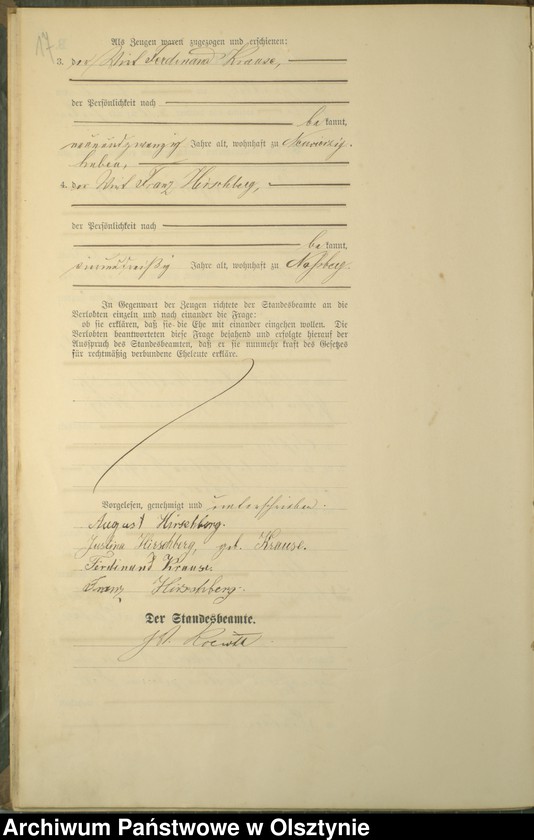 17
Als Zeugen waren zugezogen und erschienen:
3. der Wirt Ferdinand Krause,
der Persönlichkeit nach
be kannt,
neunundzwanzig Jahre alt, wohnhaft zu Neuvierzig-
huben,
4. der Wirt Franz Hirschberg,
der Persönlichkeit nach
be kannt,
Jahre alt, wohnhaft zu
In Gegenwart der Zeugen richtete der Standesbeamte an die
Verlobten einzeln und nach einander die Frage:
ob sie erklären, daß sie die Ehe mit einander eingehen wollen. Die
Verlobten beantworteten diese Frage bejahend und erfolgte hierauf der
Ausspruch des Standesbeamten, daß er sie nunmehr kraft des Gesetzes
für rechtmäßig verbundene Eheleute erkläre.
Vorgelesen, genehmigt und unterschrieben.
August Hirschberg.
Justina Hirschberg, geb. Krause.
Ferdinand Krause.
Franz Hirschberg.
Der Standesbeamte.
Archiwum Państwowe w Olsztynie